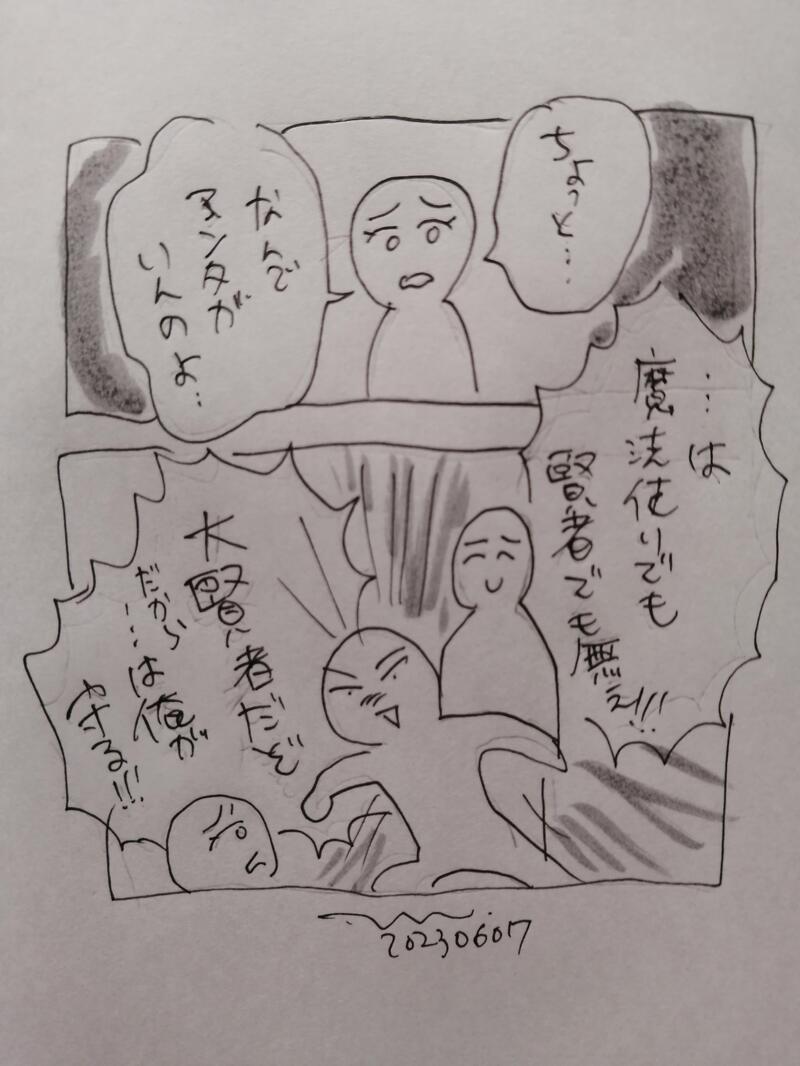 ちょっと…
なんで
アンタが
いんのよ…
…は
魔法使いでも
賢者でも無
え!!!
大賢者だぞ
だから
…は俺が
守る!!!
20230607